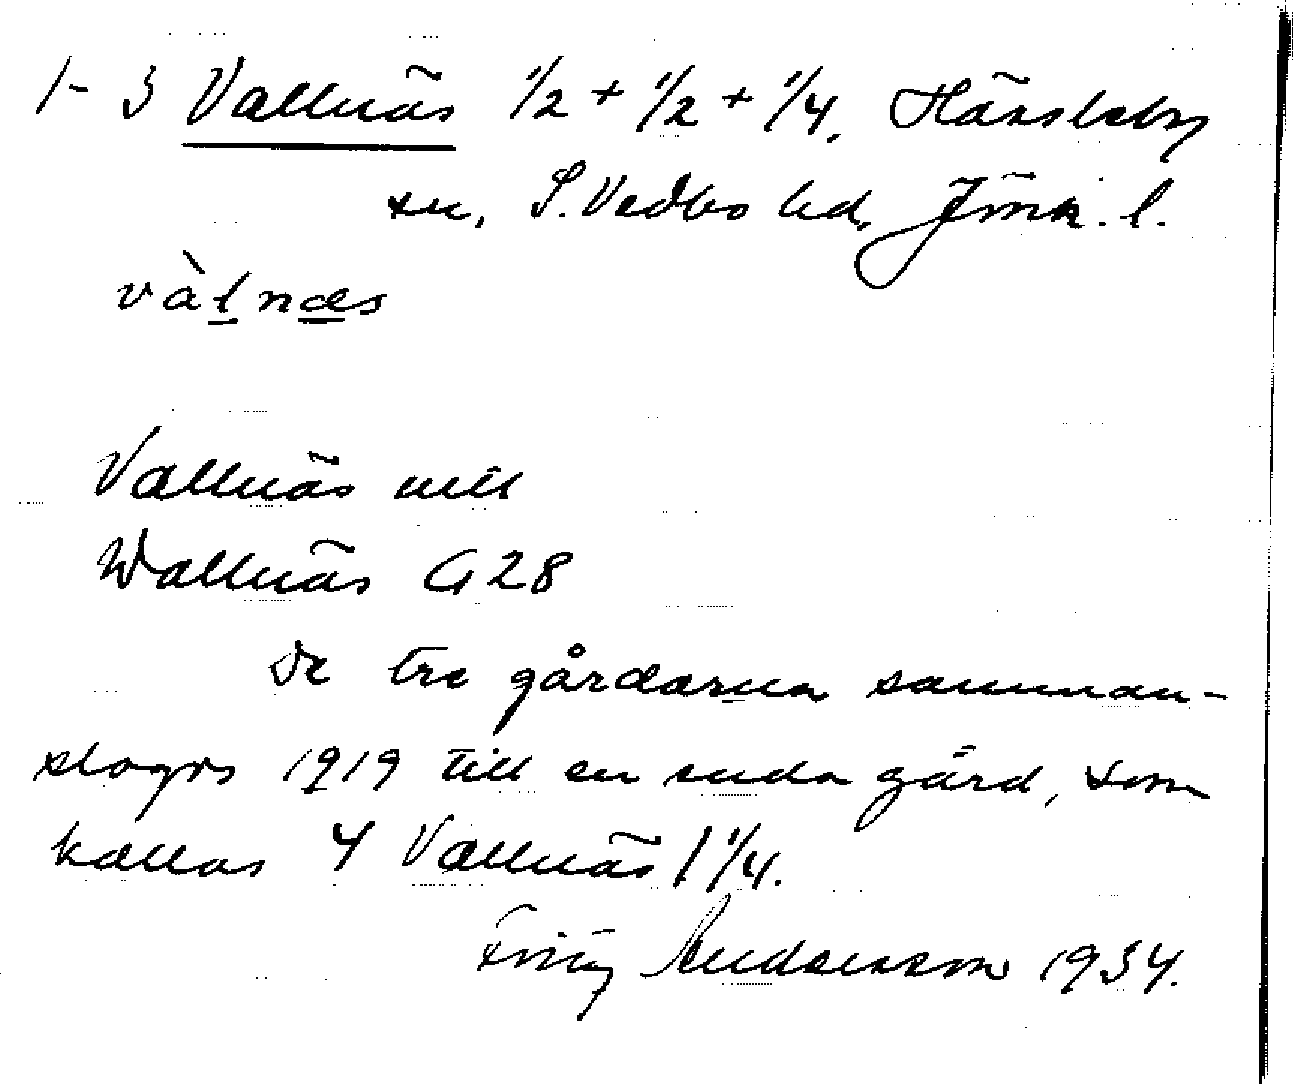 1-3 Vallnäs 1/2 + 1/2 + 1/4. Hässleby
sn, S. Vedbo hd, Jönk. l.
vàlnæs
Vallnäs uttt
Wallnäs G 28
De tre gårdarna samman-
slogos 1919 till en enda gård, som
kallas 4 Vallnäs 1 1/4.
Andersson 1934.